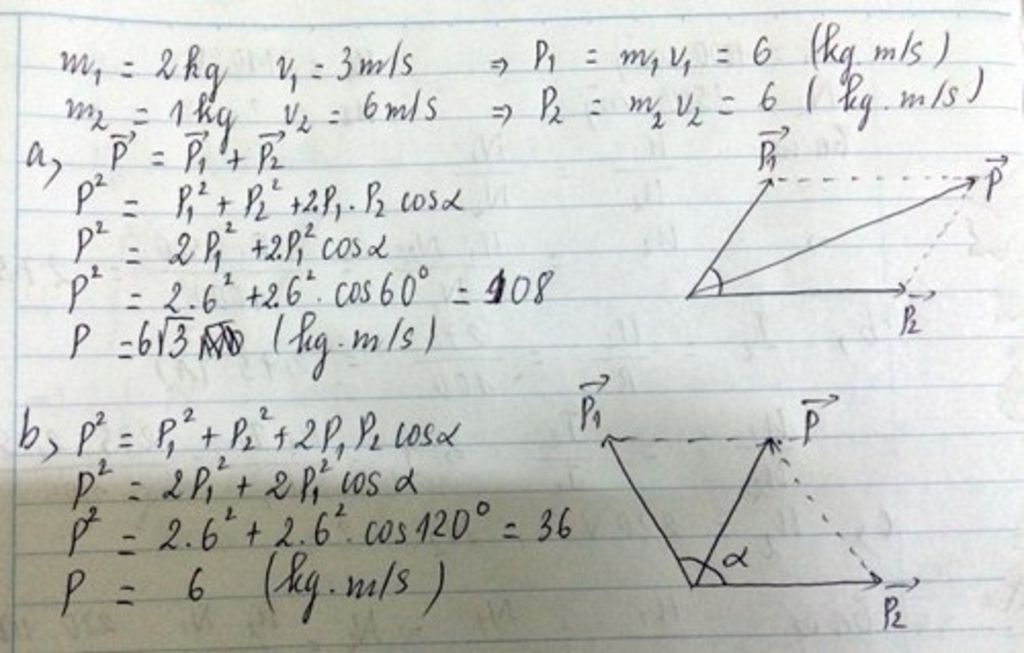 m₁ = 2kg v₁ = 3m/s ⇒ P₁ = m₁v₁ = 6 (kg.m/s)
m₂ = 1kg v₂ = 6m/s ⇒ P₂ = m₂v₂ = 6 (kg.m/s)
a, P⃗ = P⃗₁ + P⃗₂
P² = P₁² + P₂² + 2.P₁.P₂ cosα
P² = 2P₁² + 2P₁² cosα
P² = 2.6² + 2.6². cos60° = 108
P = 6√3 (kg.m/s)
P⃗₁
P⃗
P⃗₂
b, P² = P₁² + P₂² + 2P₁P₂ cosα
P² = 2P₁² + 2P₁² cosα
P² = 2.6² + 2.6². cos120° = 36
P = 6 (kg.m/s)
P⃗₁ P⃗
α
P⃗₂